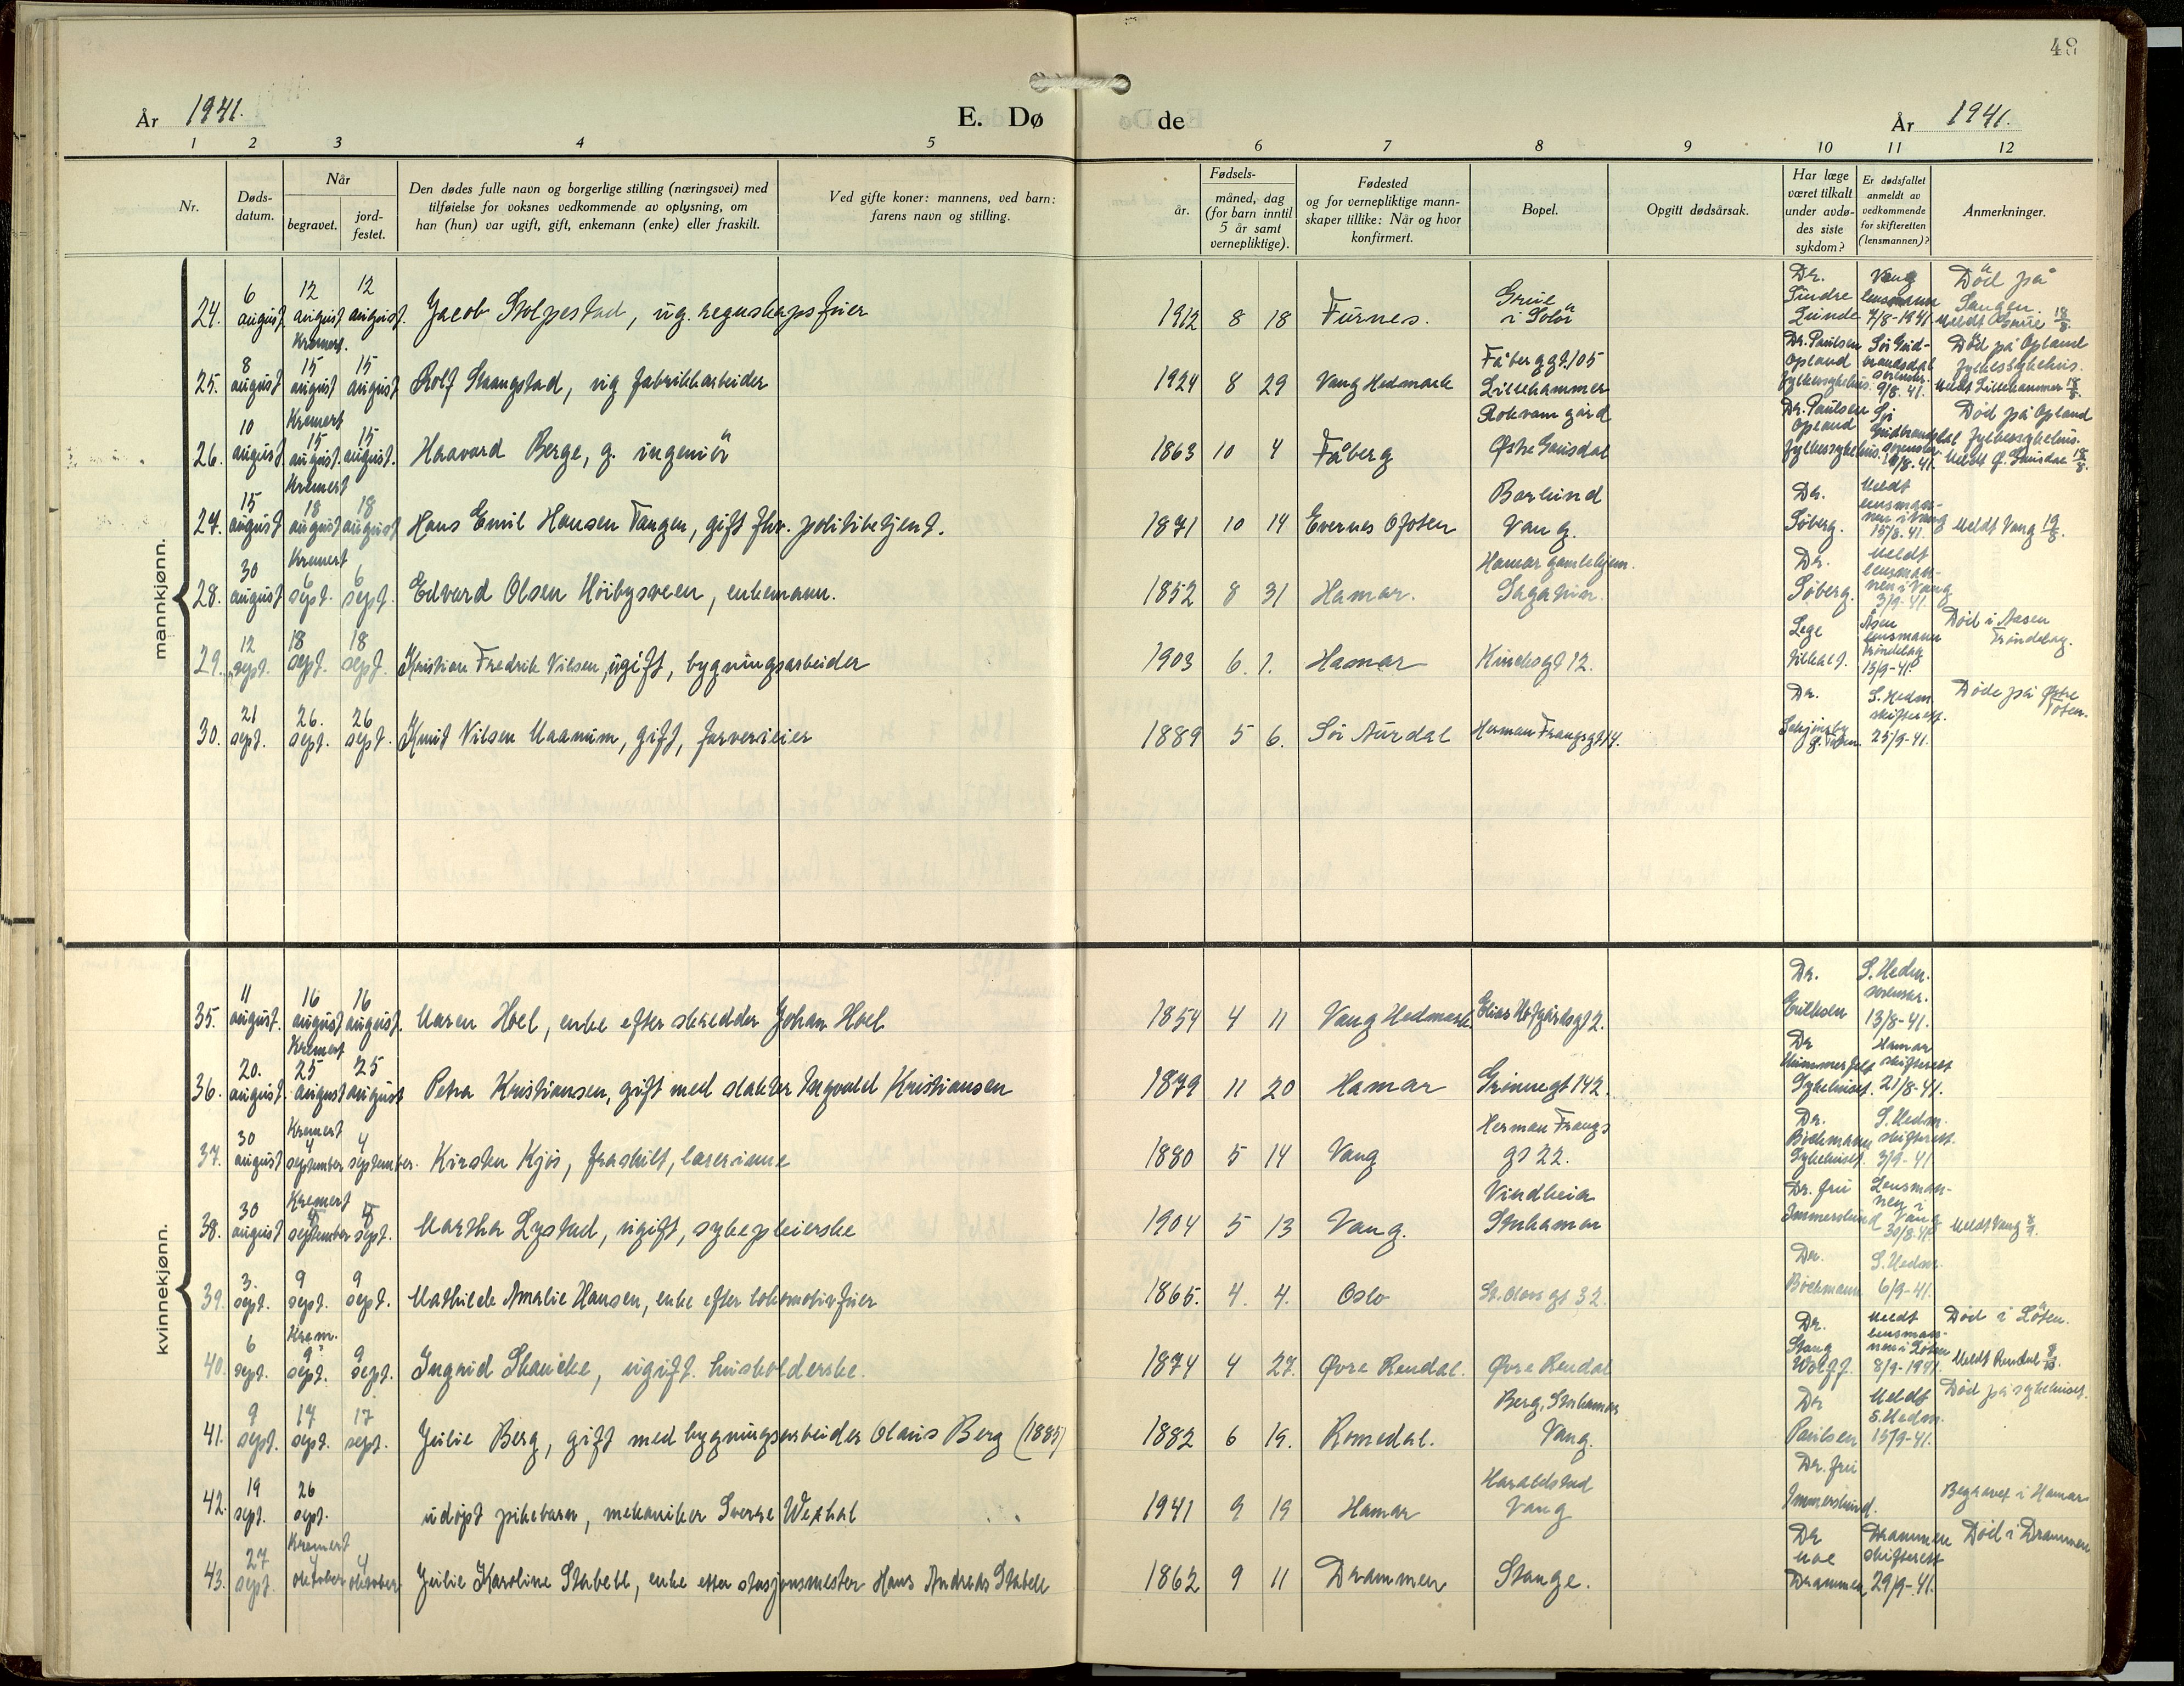 48
År 1941. E. Dø de År 1941.
1 2 3 4 5 6 7 8 9 10 11 12
Nr.
Døds-
datum.
Når
begravet.
jord-
festet.
Den dødes fulle navn og borgerlige stilling (næringsvei) med
tilføielse for voksnes vedkommende av oplysning, om
han (hun) var ugift, gift, enkemann (enke) eller fraskilt.
Ved gifte koner: mannens, ved barn:
farens navn og stilling.
Fødsels-
år.
måned, dag
(for barn inntil
5 år samt
vernepliktige).
Fødested
og for vernepliktige mann-
skaper tillike: Når og hvor
konfirmert.
Bopel.
Opgitt dødsårsak.
Har læge
været tilkalt
under avdø-
des siste
sykdom?
Er dødsfallet
anmeldt av
vedkommende
for skifteretten
(lensmannen)?
Anmerkninger.
mannkjønn.
24. 6 august 12 august Kremert. 12 august. Jacob Stolpestad, ug. regnskapsfører 1912 8 18 Furnes. Grue i Solør Dr. Sindre Lunde Vang lensmann 7/8-1941. Død på Sangen. Meldt Grue 18/8.
25. 8 august 15 august Kremert 15 august Rolf Staangstad, ug fabrikkarbeider 1924 8 29 Vang Hedmark Fåberggt. 105 Lillehammer Dr. Paulsen Opland fylkessykehus. Sør Gud-brandsdal sorenskr. 9/8. 41. Død på Opland fylkessykehus. Meldt Lillehammer 18/8.
26. 10 august. 15 august. Kremert 15 august. Haavard Berge, g. ingeniør 1863 10 4 Fåberg Rokvam gård Østre Gausdal Dr. Paulsen Opland fylkessykehus. Sør Gudbrandsdal sorenskr. /8-41. Død på Opland fylkessykehus. Meldt Ø. Gausdal 18/8.
27. 15 august 18 august Kremert 18 august Hans Emil Hansen Tangen, gift fhv. politibetjent. 1871 10 14 Evernes Ofoten Borlund Vang. Dr. Søberg. Meldt lensman-nen i Vang 15/8-41. Meldt Vang 19/8.
28. 30 august 6 sept. 6 sept. Edvard Olsen Høibysveen, enkemann. 1852 8 31 Hamar. Hamar gamlehjem. Sagahin. Dr. Søberg. Meldt lensman-nen i Vang 3/9-41.
29. 12 sept. 18 sept. 18 sept. Kristian Fredrik Nilsen, ugift, bygningsarbeider 1903 6. 1. Hamar Kirkegt 12. Lege tilkalt. Åsen lensmann Trøndelag 13/9-41. Død i Aasen Trøndelag.
30. 21 sept. 26. sept. 26 sept. Knut Nilsen Maanum, gift, farverieier 1889 5 6. Sør Aurdal Herman Frangsgt 14. Dr. S. Hedm. skifterett. 25/9-41. Døde på Østre Toten.
kvinnekjønn.
35. 11 august. 16 august Kremert 16 august. Maren Hoel, enke efter skredder Johan Hoel 1854 4 11 Vang Hedmark. Elias Hofgårdsgt 2. Dr. Eriksen S. Hedm. sorenskr. 13/8-41.
36. 20. august. 25 august Kremert 25 august Petra Kristiansen, gift med slakter Ingvald Kristiansen 1879 11 20 Hamar Grønnegt 142. Dr Hammerfelt Sykehuset. Hamar skifterett 21/8-41.
37. 30 august 4 september Kremert 4 september. Kirsten Kjøs, fraskilt, lærerinne 1880 5 14 Vang Herman Frangs gt 22. Dr. Böckmann Sykehuset. S. Hedm. skifterett. 3/9-41
38. 30 august september sept. Martha Lystad, ugift, sykepleierske 1904 5 13 Vang. Vindheia Storhamar Dr. fru Immerslund Lensman-nen i Vang 30/8-41. Meldt Vang
39. 3. sept. 9 sept. Krem. 9 sept. Mathilde Amalie Hansen, enke efter lokomotivfører 1865. 4. 4. Oslo St. Olavs gt 32. Dr. Böckmann S. Hedm. 6/9-41.
40. 6 sept. 9 sept. 9 sept. Ingrid Skancke, ugift. husholderske. 1874 4 27. Øvre Rendal. Øvre Rendal Dr. Stang Wolff. Meldt lensman-nen i Løten 8/9-1941. Død i Løten. Meldt Rendal
41. 9 sept. 17 sept. 17 sept. Julie Berg, gift med bygningsarbeider Olaus Berg (1885) 1882 6 19. Romedal. Berg, Storhamar Vang. Dr Paulsen Meldt S. Hedm. 15/9-41. Død på sykehuset.
42. 19 sept. 26 sept. Kremert udøpt pikebarn, mekaniker Sverre Wexhal 1941 9 19 Hamar Haraldstad Vang Dr. fru Immerslund. Begravet i Hamar
43. 27 sept. 4 oktober 4 oktober Julie Karoline Stabell, enke etter stasjonsmester Hans Andreas Stabell 1862 9 11 Drammen Stange. Dr Moe Drammen Drammen skifterett 29/9-41. Død i Drammen